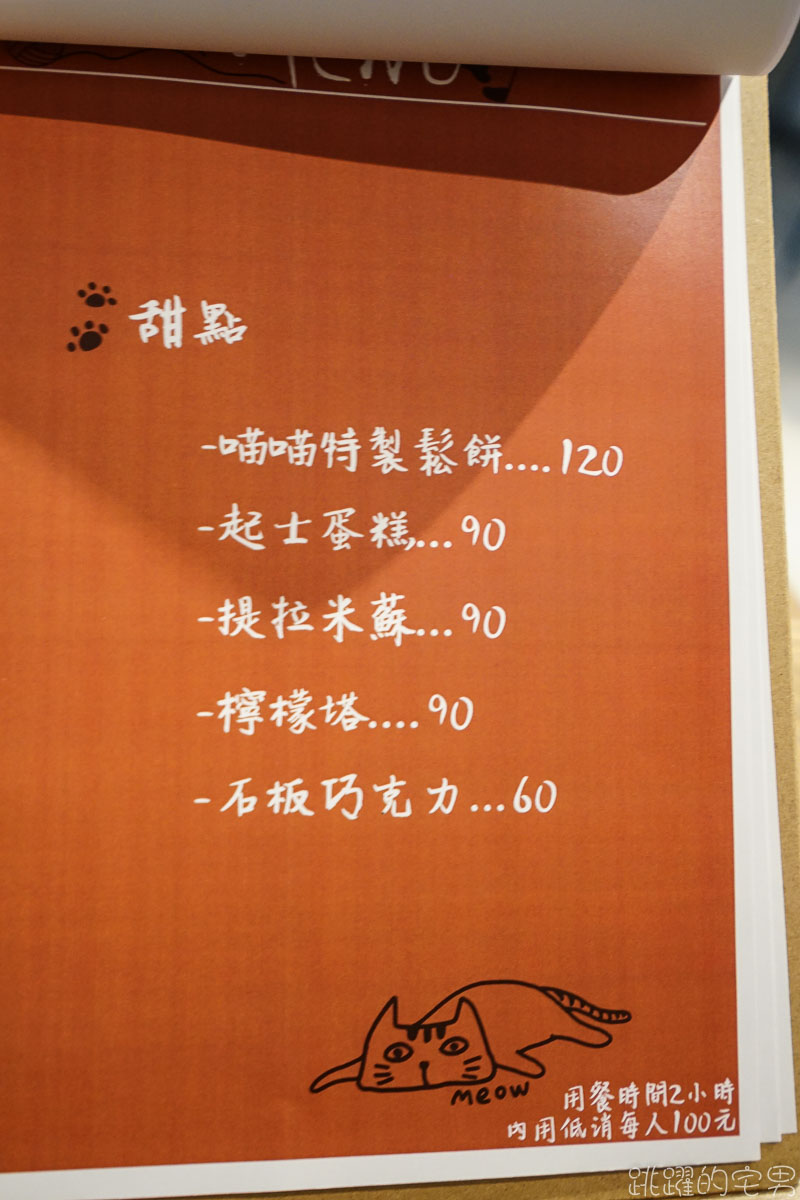 甜點
-喵喵特製鬆餅....120
-起士蛋糕....90
-提拉米蘇...90
-檸檬塔....90
-石板巧克力...60
meow
用餐時間2小時
內用低消每人100元
跳躍的宅男